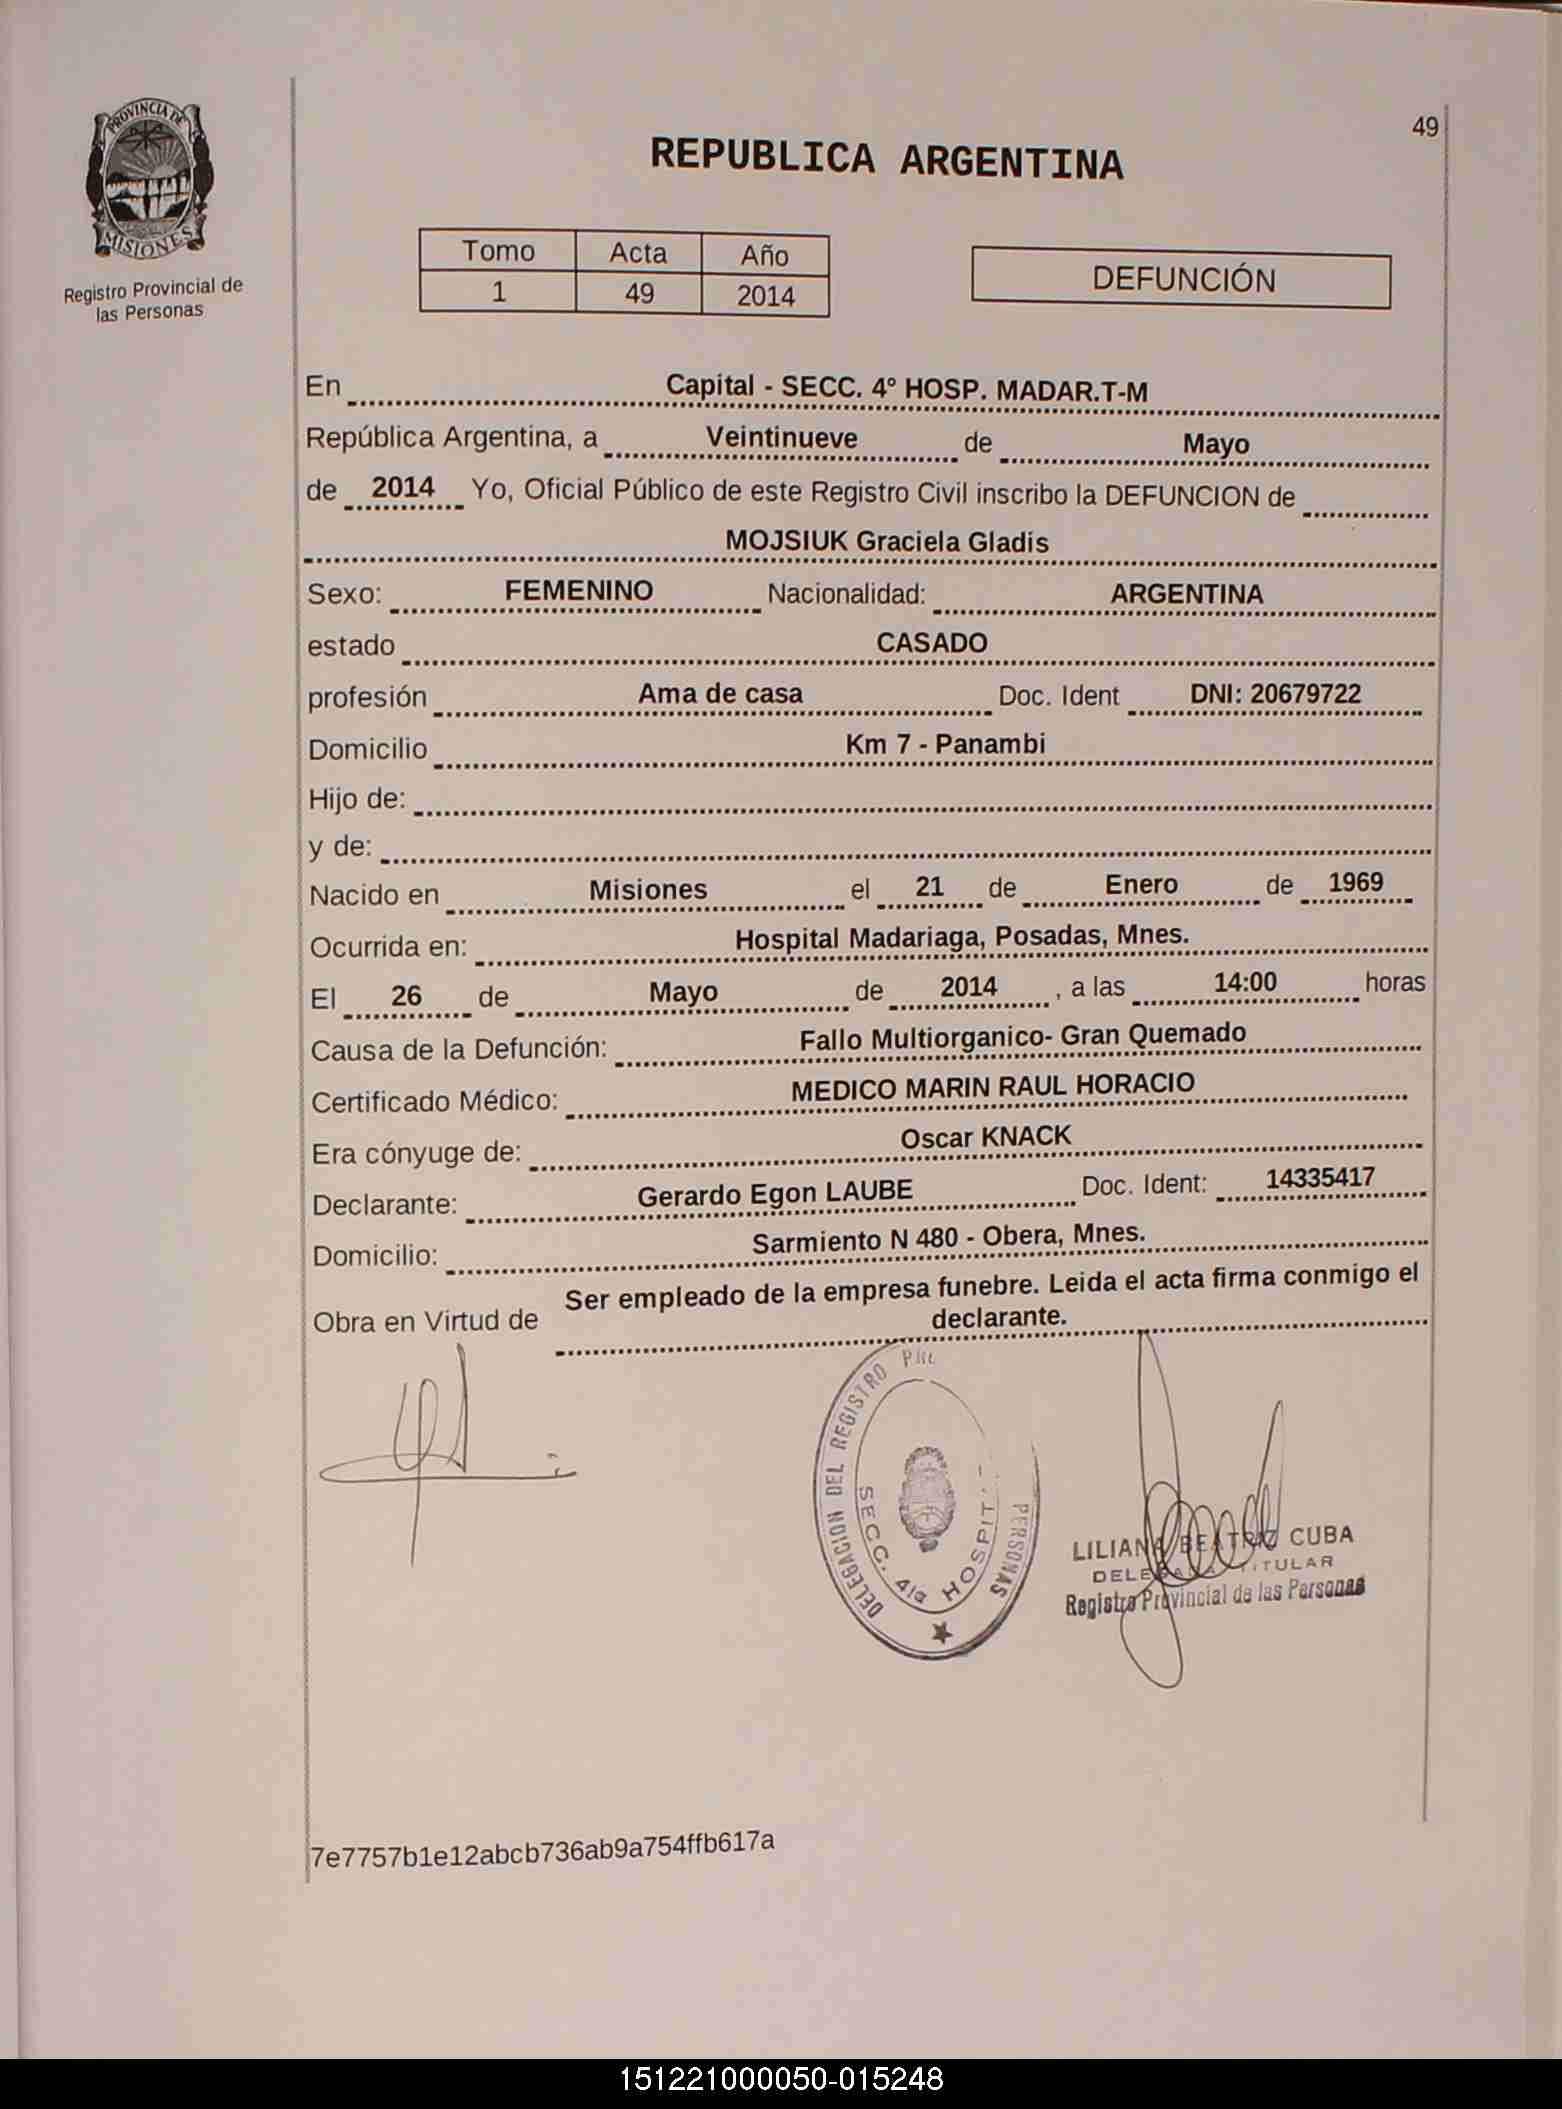 49
PROVINCIA DE
MISIONES
Registro Provincial de
las Personas
REPUBLICA ARGENTINA
Tomo Acta Año
1 49 2014
DEFUNCIÓN
En Capital - SECC. 4º HOSP. MADAR.T-M
República Argentina, a Veintinueve de Mayo
de 2014 Yo, Oficial Público de este Registro Civil inscribo la DEFUNCION de
MOJSIUK Graciela Gladis
Sexo: FEMENINO Nacionalidad: ARGENTINA
estado CASADO
profesión Ama de casa Doc. Ident DNI: 20679722
Domicilio Km 7 - Panambi
Hijo de:
y de:
Nacido en Misiones el 21 de Enero de 1969
Ocurrida en: Hospital Madariaga, Posadas, Mnes.
El 26 de Mayo de 2014 , a las 14:00 horas
Causa de la Defunción: Fallo Multiorganico- Gran Quemado
Certificado Médico: MEDICO MARIN RAUL HORACIO
Era cónyuge de: Oscar KNACK
Declarante: Gerardo Egon LAUBE Doc. Ident: 14335417
Domicilio: Sarmiento N 480 - Obera, Mnes.
Obra en Virtud de Ser empleado de la empresa funebre. Leida el acta firma conmigo el
declarante.
DELEGACION DEL REGISTRO PERSONAS
SECC. 4ta HOSPIT
LILIANA BEATRIZ CUBA
DELEGADA TITULAR
Registro Provincial de las Personas
7e7757b1e12abcb736ab9a754ffb617a
151221000050-015248